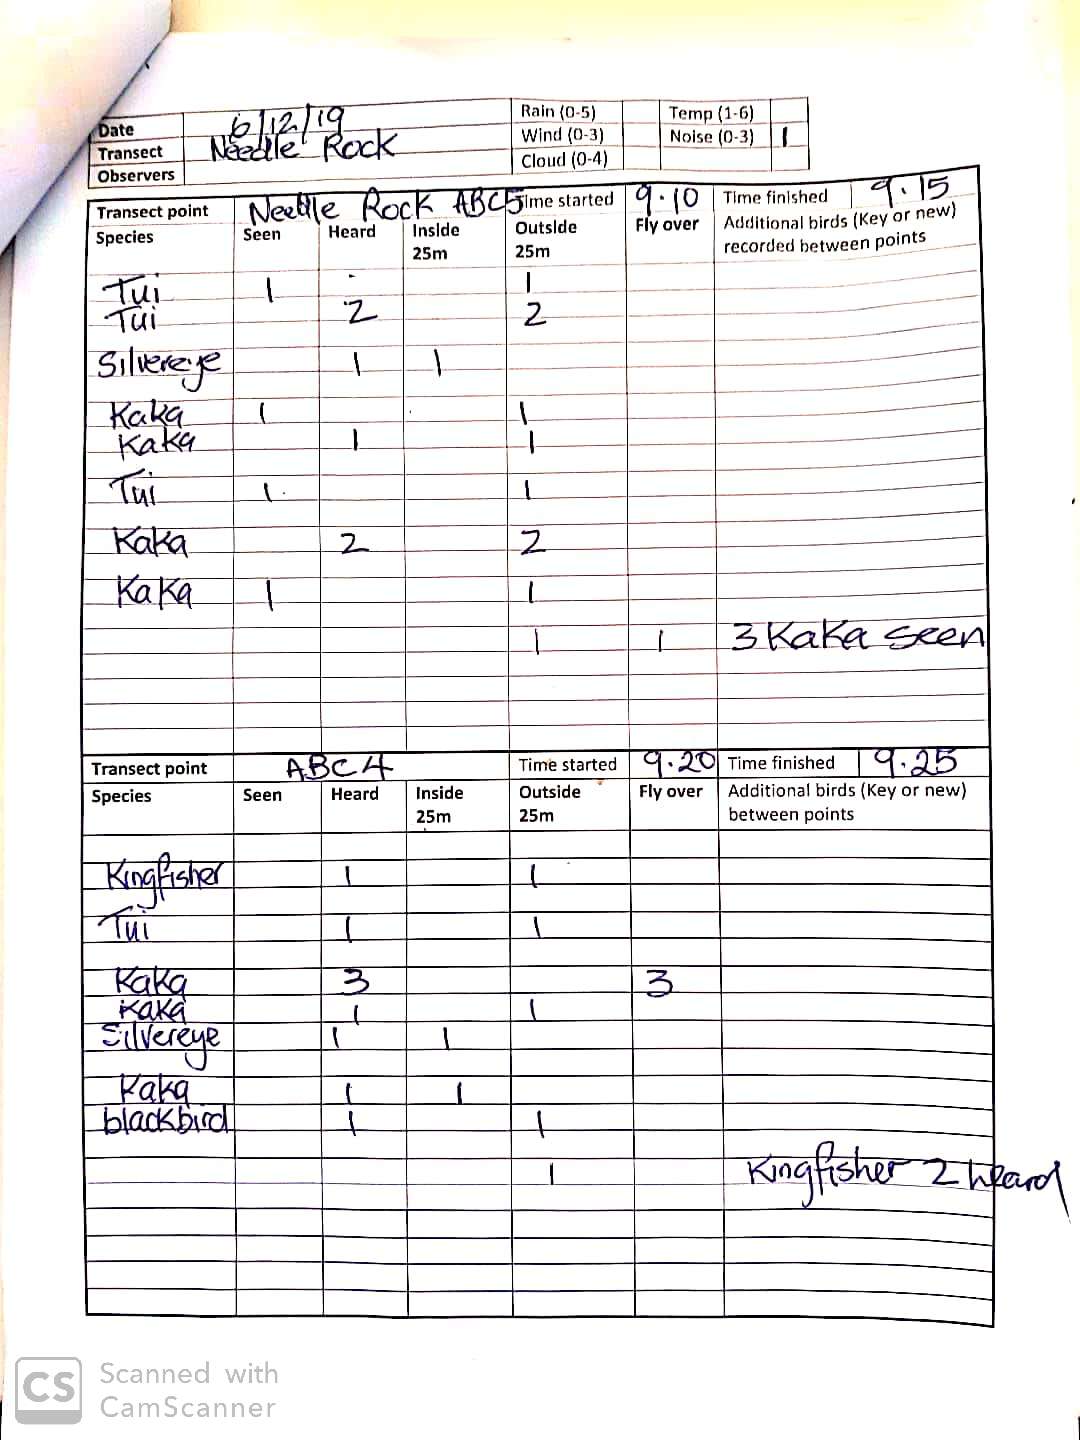 Date 6/12/19 Rain (0-5) Temp (1-6)
Transect Needle Rock Wind (0-3) Noise (0-3) 1
Observers Cloud (0-4)
Transect point Needle Rock ABC5 Time started 9.10 Time finished 9.15
Species Seen Heard Inside 25m Outside 25m Fly over Additional birds (Key or new) recorded between points
Tui 1 1
Tui 2 2
Silvereye 1 1
Kaka 1 1
Kaka 1 1
Tui 1 1
Kaka 2 2
Kaka 1 1
1 1 3 Kaka seen
Transect point ABC4 Time started 9.20 Time finished 9.25
Species Seen Heard Inside 25m Outside 25m Fly over Additional birds (Key or new) between points
Kingfisher 1 1
Tui 1 1
Kaka 3 3
Kaka 1 1
Silvereye 1 1
Kaka 1 1
blackbird 1 1
1 Kingfisher 2 heard
CS Scanned with
CamScanner